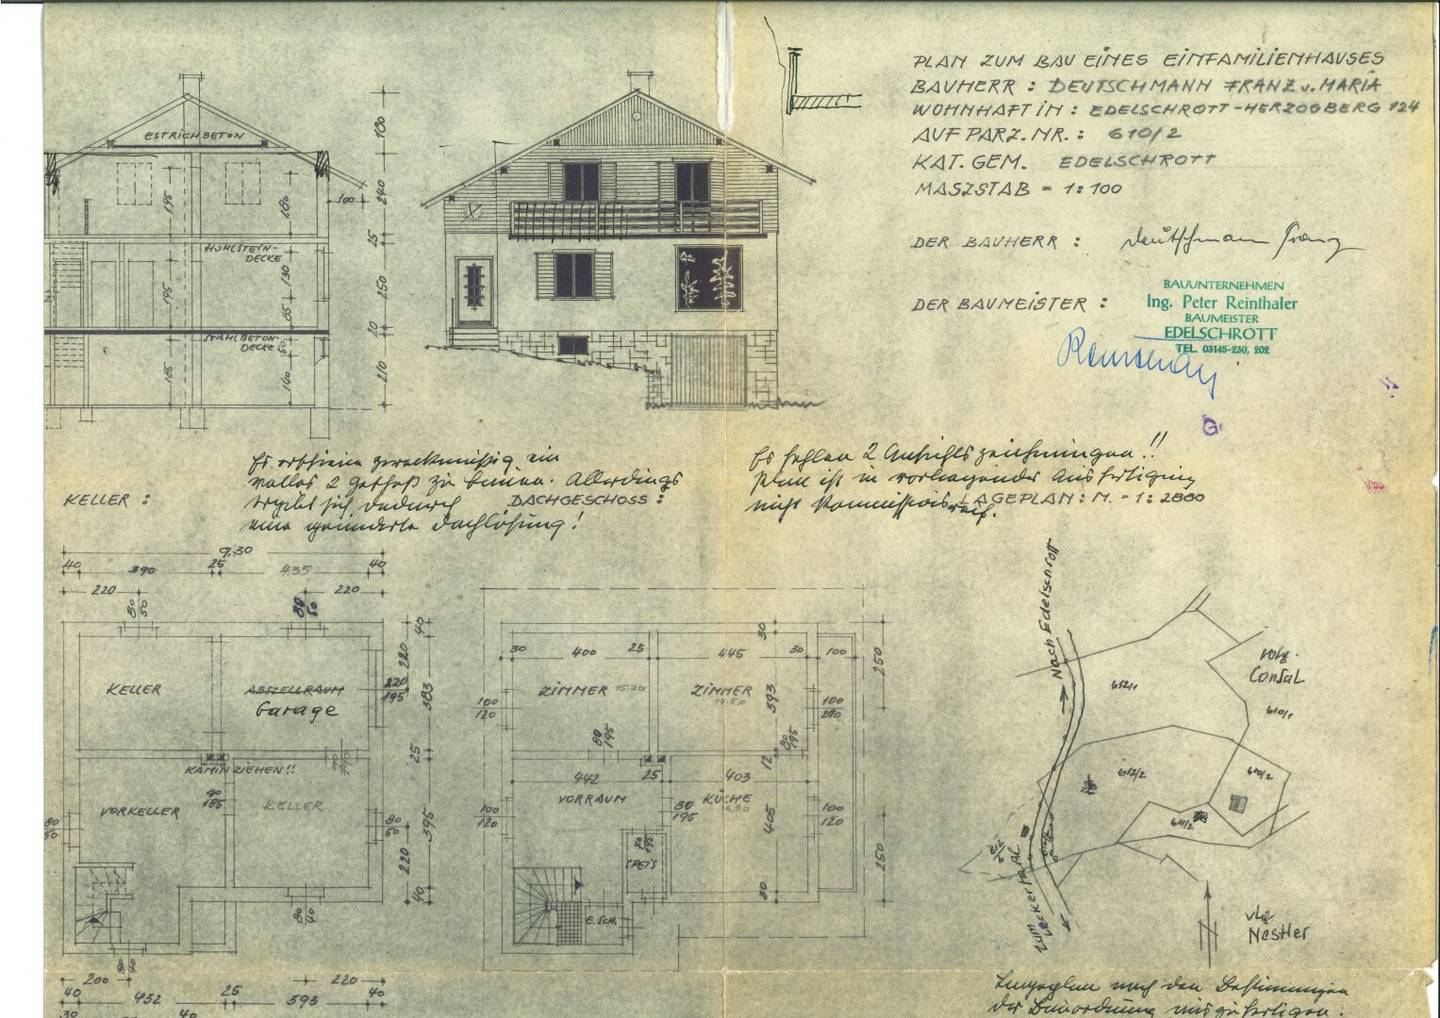 PLAN ZUM BAU EINES EINFAMILIENHAUSES
BAUHERR : DEUTSCHMANN FRANZ u. MARIA
WOHNHAFT IN : EDELSCHROTT-HERZOGBERG 124
AUF PARZ. NR. : 610/2
KAT. GEM. EDELSCHROTT
MASZSTAB = 1:100
DER BAUHERR : Deutschmann Franz
DER BAUMEISTER :
BAUUNTERNEHMEN
Ing. Peter Reinthaler
BAUMEISTER
EDELSCHROTT
TEL. 03145-230, 202
ESTRICHBETON
HOHLSTEIN-
DECKE
STAHLBETON-
DECKE
100
180
240
25
250
20
210
195
180
195
130
85
185
50
140
Es erschiene zweckmäßig ein
volles 2 Geschoß zu bauen. Allerdings
ergibt sich dadurch
eine geänderte Dachlösung!
Es fehlen 2 Ansichtszeichnungen!!
Plan ist in vorliegender Ausfertigung
nicht kommissionsreif.
KELLER :
DACHGESCHOSS :
LAGEPLAN : M. - 1: 2880
9,30
40 390 25 435 40
220 220
80
50
80
50
KELLER
ABSTELLRAUM
Garage
220
195
40
220
383
25
KAMIN ZIEHEN!!
VORKELLER
90
185
KELLER
80
50
80
50
395
220
40
80
40
200 220
40 432 25 393 40
30
30 400 25 445 30 100
30
250
ZIMMER
ZIMMER
393
100
120
100
200
80
195
80
195
12
442 25 403
VORRAUM
KÜCHE
80
195
100
120
100
120
405
SPEIS
E.SCH.
250
30
Nach Edelschrott
612/1
vlg.
Consal
610/1
612/2
610/2
611/2
zum
vlg
Nestler
Lageplan nach den Bestimmungen
der Bauordnung auszufertigen.